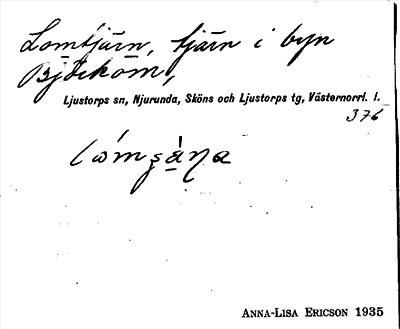 Lomtjärn, tjärn i byn
Björköm,
Ljustorps sn, Njurunda, Sköns och Ljustorps tg, Västernorrl. l.
376
ANNA-LISA ERICSON 1935